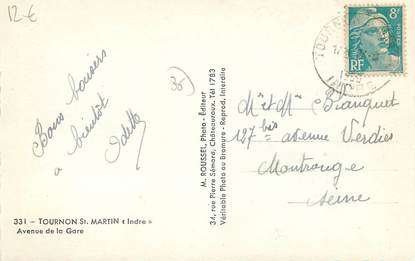 12-€
Bons baisers
a bientôt
Odette
331 - TOURNON St. MARTIN « Indre »
Avenue de la Gare
M. ROUSSEL, Photo - Éditeur
34, rue Pierre Sémard, Châteauroux. Tél 1783
Véritable Photo au Bromure - Reprod. Interdite
8F
POSTES
RF
TOURNON
INDRE
Mr et Me Blanquet
127 bis avenue Verdier
Montrouge
Seine